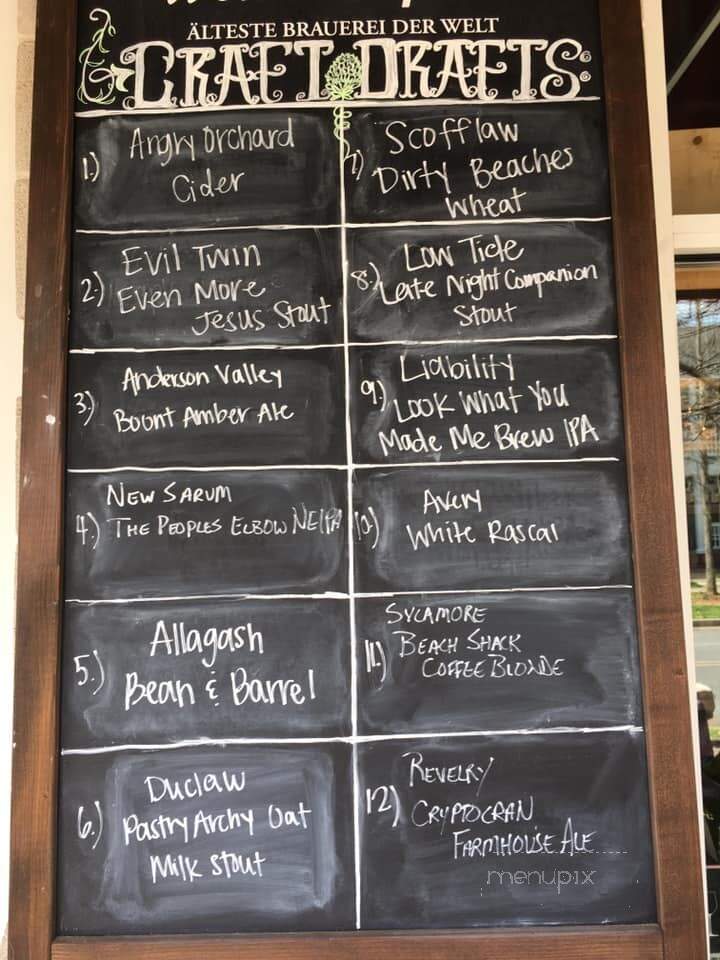 ÄLTESTE BRAUEREI DER WELT
CRAFT DRAFTS:
1.) Angry Orchard
Cider
2.) Evil Twin
Even More
Jesus Stout
3.) Anderson Valley
Boont Amber Ale
4.) NEW SARUM
THE PEOPLES ELBOW NEIPA
5.) Allagash
Bean & Barrel
6.) Duclaw
Pastry Archy Oat
Milk Stout
7) Scofflaw
Dirty Beaches
Wheat
8.) Low Tide
Late Night Companion
Stout
9.) Liability
Look What You
Made Me Brew IPA
10.) Avery
White Rascal
11.) SYCAMORE
BEACH SHACK
COFFEE BLONDE
12) REVELRY
CRYPTOCRAN
FARMHOUSE ALE
menupix